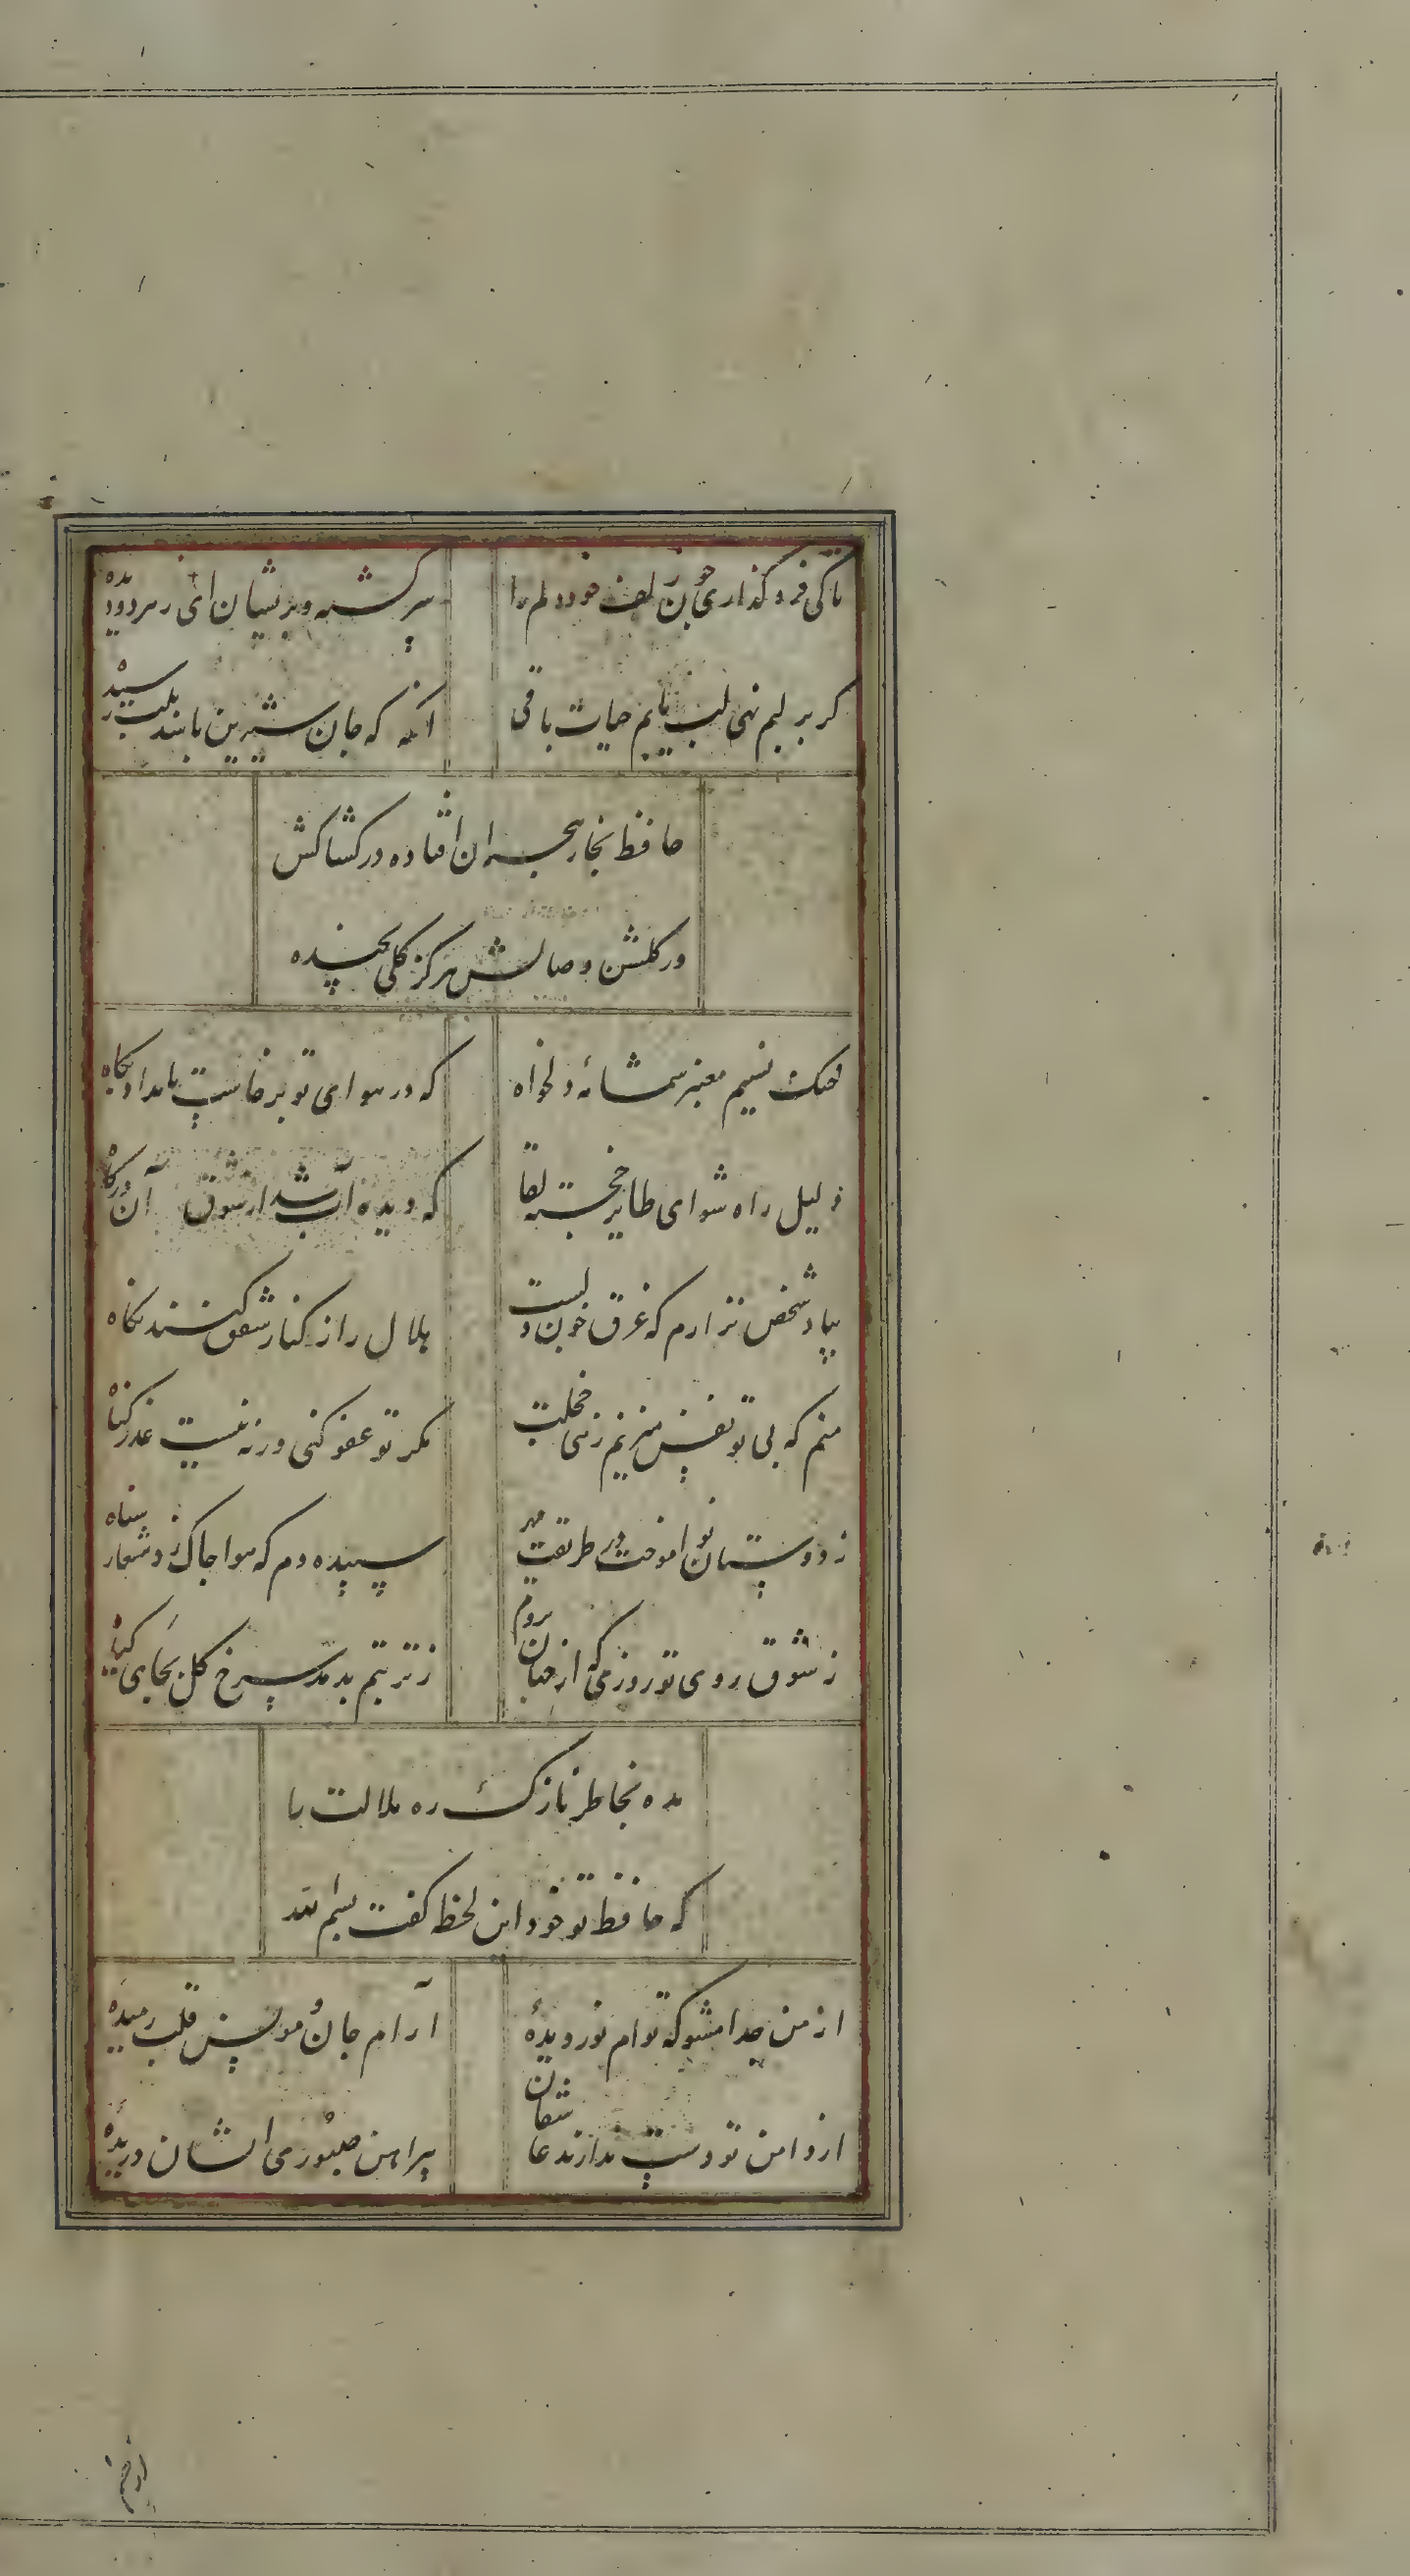 تا کی فرو گذاری چون زلف خود دلم را
سرگشته و پریشان ای دیده
گر بر لبم نهی لب یابم حیات باقی
آنگه که جان شیرین باشد بلب رسیده
حافظ بخار هجران افتاده در کشاکش
در گلشن وصالش هرگز گلی نچیده
خنک نسیم معنبر شمامه دلخواه
که در هوای تو برخاست بامداد پگاه
دلیل راه شو ای طایر خجسته لقا
که دیده آب شد از شوق آن درگاه
بیاد شخص نزارم که غرق خون دلست
هلال را ز کنار شفق کنند نگاه
منم که بی تو نفس میزنم زهی خجلت
مگر تو عفو کنی ورنه نیست عذر گناه
ز دوستان تو آموخت در طریقت مهر
سپیده دم که هوا چاک زد شعار سیاه
ز شوق روی تو روزی که از جهان بروم
ز تربتم بدمد سرخ گل بجای گیاه
مده بخاطر نازک ملالت ره با
که حافظ تو خود این لحظه گفت بسم الله
از من جدا مشو که توام نور دیدۀ
آرام جان و مونس قلب رمیدۀ
از دامن تو دست ندارند عاشقان
پیراهن صبوری ایشان دریدۀ
از چشم